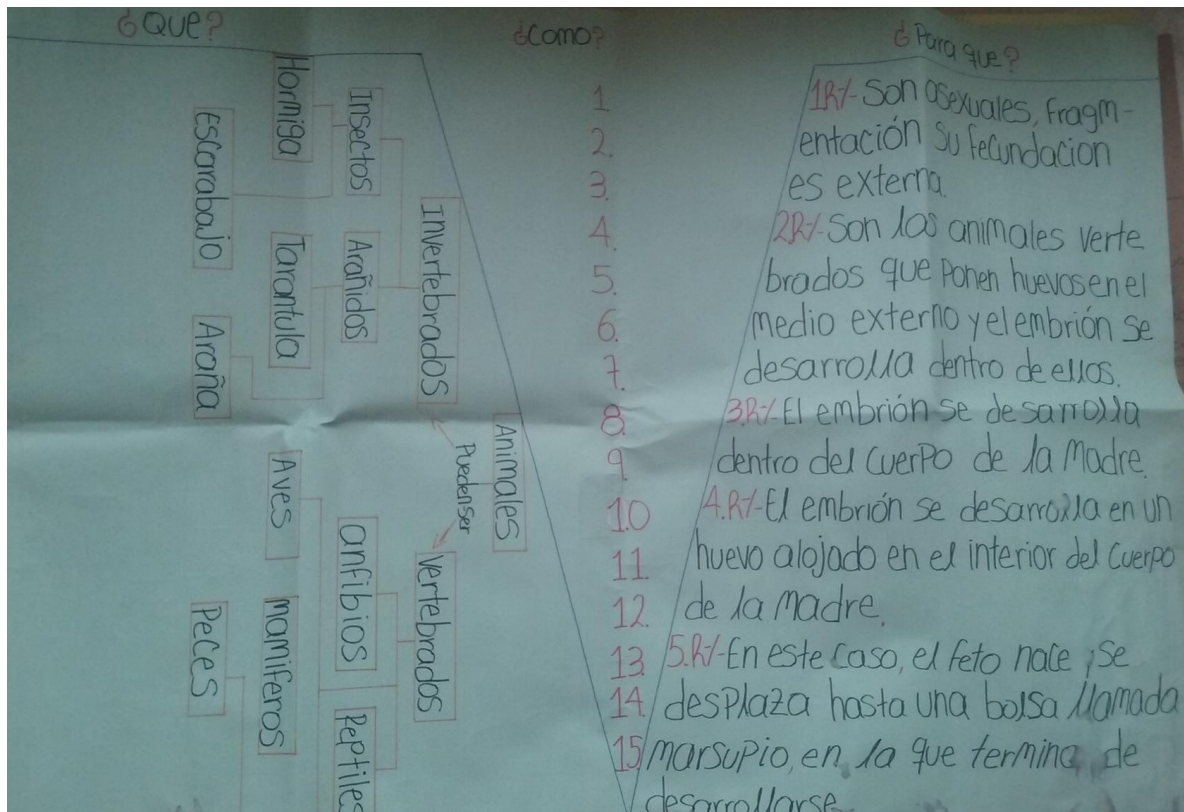 ¿Que?
¿Como?
¿Para que?
Animales
Pueden ser
Invertebrados
Vertebrados
Insectos
Arañidos
anfibios
Reptiles
Hormiga
Tarantula
Aves
mamiferos
Escarabajo
Araña
Peces
1
2.
3.
4.
5.
6.
7.
8.
9.
10
11.
12.
13.
14.
15
1R/- Son asexuales, fragm-
entación su fecundacion
es externa.
2R/- Son los animales verte
brados que ponen huevos en el
medio externo y el embrión se
desarrolla dentro de ellos.
3.R/- El embrión se desarrolla
dentro del cuerpo de la madre.
4.R/- El embrión se desarrolla en un
huevo alojado en el interior del cuerpo
de la madre.
5.R/- En este caso, el feto nace, se
desplaza hasta una bolsa llamada
marsupio, en la que termina de
desarrollarse